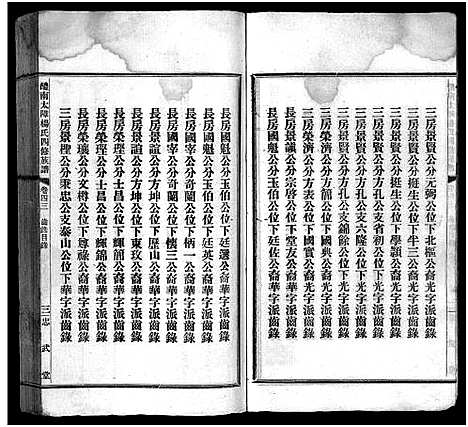 三房景賢公分元弼公位下北樞公裔光字派齒錄
三房景賢公分挺生公位下牛三公裔光字派齒錄
三房景賢公分挺生公位下學顥公裔光字派齒錄
三房景賢公分方孔公支省初公位下光字派齒錄
三房景賢公分方孔公支六隆公位下光字派齒錄
三房景賢公分方孔公支錦餘公位下光字派齒錄
三房榮濟公分方簡公位下國典公裔光字派齒錄
三房榮濟公分方表公位下國賓公裔光字派齒錄
三房景韻公分宗啓公位下堂友公裔光字派齒錄
長房國魁公分玉伯公位下廷佐公裔華字派齒錄
長房國魁公分玉伯公位下廷選公裔華字派齒錄
長房國魁公分玉伯公位下廷英公裔華字派齒錄
長房國宰公分奇蘭公位下柄一公裔華字派齒錄
長房國宰公分奇蘭公位下懷三公裔華字派齒錄
長房景誼公分方坤公位下歷山公裔華字派齒錄
長房景誼公分方坤公位下東玫公裔華字派齒錄
長房榮瑆公分士昌公位下輝簡公裔華字派齒錄
長房榮瑆公分士昌公位下輝錦公裔華字派齒錄
長房榮瓖公分文樽公位下尊祿公裔華字派齒錄
三房景樫公分秉忠公支泰山公位下華字派齒錄
醴南太障楊氏四修族譜
卷四三 齒錄目錄
三 志武堂